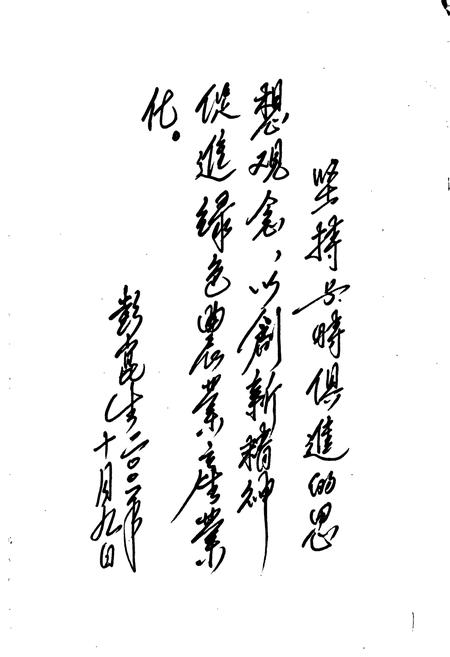 坚持与時俱進的思
想观念，以創新精神
促進绿色農業産業
化。
彭崑生二〇〇二年
十月九日